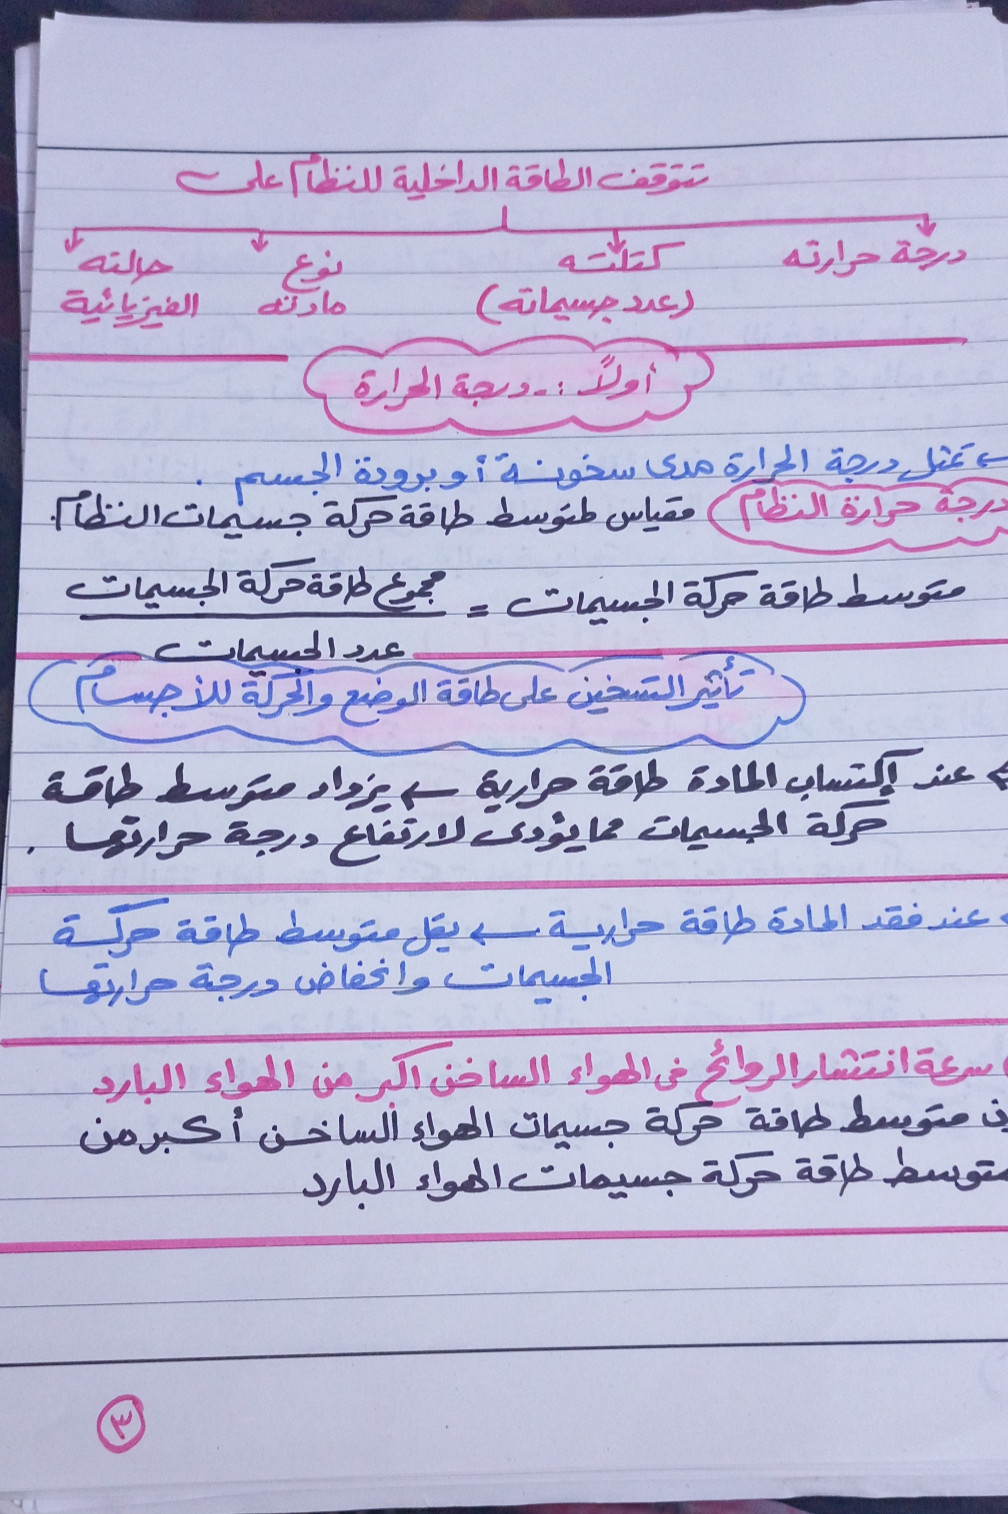 تتوقف الطاقة الداخلية للنظام على
درجة حرارته كتلته نوع حالته
(عدد جسيماته) مادته الفيزيائية
أولاً :- درجة الحرارة
← تمثل درجة الحرارة مدى سخونة أو برودة الجسم .
درجة حرارة النظام مقياس لمتوسط طاقة حركة جسيمات النظام.
متوسط طاقة حركة الجسيمات = مجموع طاقة حركة الجسيمات
عدد الجسيمات
تأثير التسخين على طاقة الوضع والحركة للأجسام
← عند إكتساب المادة طاقة حرارية ← يزداد متوسط طاقة
حركة الجسيمات مما يؤدى لارتفاع درجة حرارتها .
عند فقد المادة طاقة حرارية ← يقل متوسط طاقة حركة
الجسيمات وانخفاض درجة حرارتها
سرعة انتشار الروائح فى الهواء الساخن اكبر من الهواء البارد
متوسط طاقة حركة جسيمات الهواء الساخن أكبر من
متوسط طاقة حركة جسيمات الهواء البارد
٣